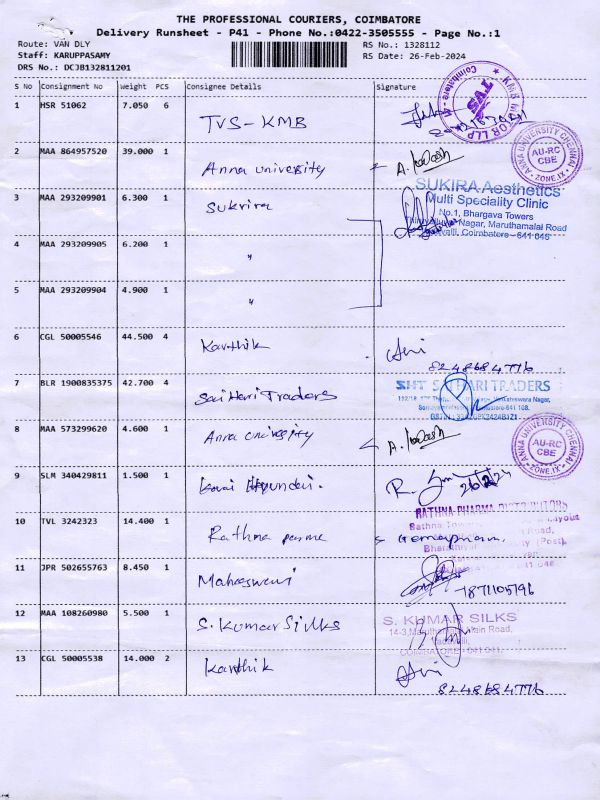 THE PROFESSIONAL COURIERS, COIMBATORE
Delivery Runsheet - P41 - Phone No.:0422-3505555 - Page No.:1
Route: VAN DLY RS No.: 1328112
Staff: KARUPPASAMY RS Date: 26-Feb-2024
DRS No.: DCJB132811201
S No Consignment No Weight PCS Consignee Details Signature
1 HSR 51062 7.050 6 TVS-KMB
2 MAA 864957520 39.000 1 Anna university A.
ANNA UNIVERSITY CHENNAI AU-RC CBE ZONE.IX
3 MAA 293209901 6.300 1 Sukrira
SUKIRA Aesthetics
Multi Speciality Clinic
No.1, Bhargava Towers
Nagar, Maruthamalai Road
Coimbatore - 641 046
4 MAA 293209905 6.200 1 "
5 MAA 293209904 4.900 1 "
6 CGL 50005546 44.500 4 Karthik
8248684776
7 BLR 1900835375 42.700 4 Sai Hari Traders
SHT SAI HARI TRADERS
8 MAA 573299620 4.600 1 Anna university A.
ANNA UNIVERSITY CHENNAI AU-RC CBE ZONE.IX
9 SLM 340429811 1.500 1 Kovai Hyundai. R.
10 TVL 3242323 14.400 1 Rathna
RATHNA PHARMA DISTRIBUTORS
11 JPR 502655763 8.450 1 Maheswari
12 MAA 108260980 5.500 1 S. Kumar Silks
S. KUMAR SILKS
Main Road,
COIMBATORE - 641 041.
13 CGL 50005538 14.000 2 Karthik
8248684776